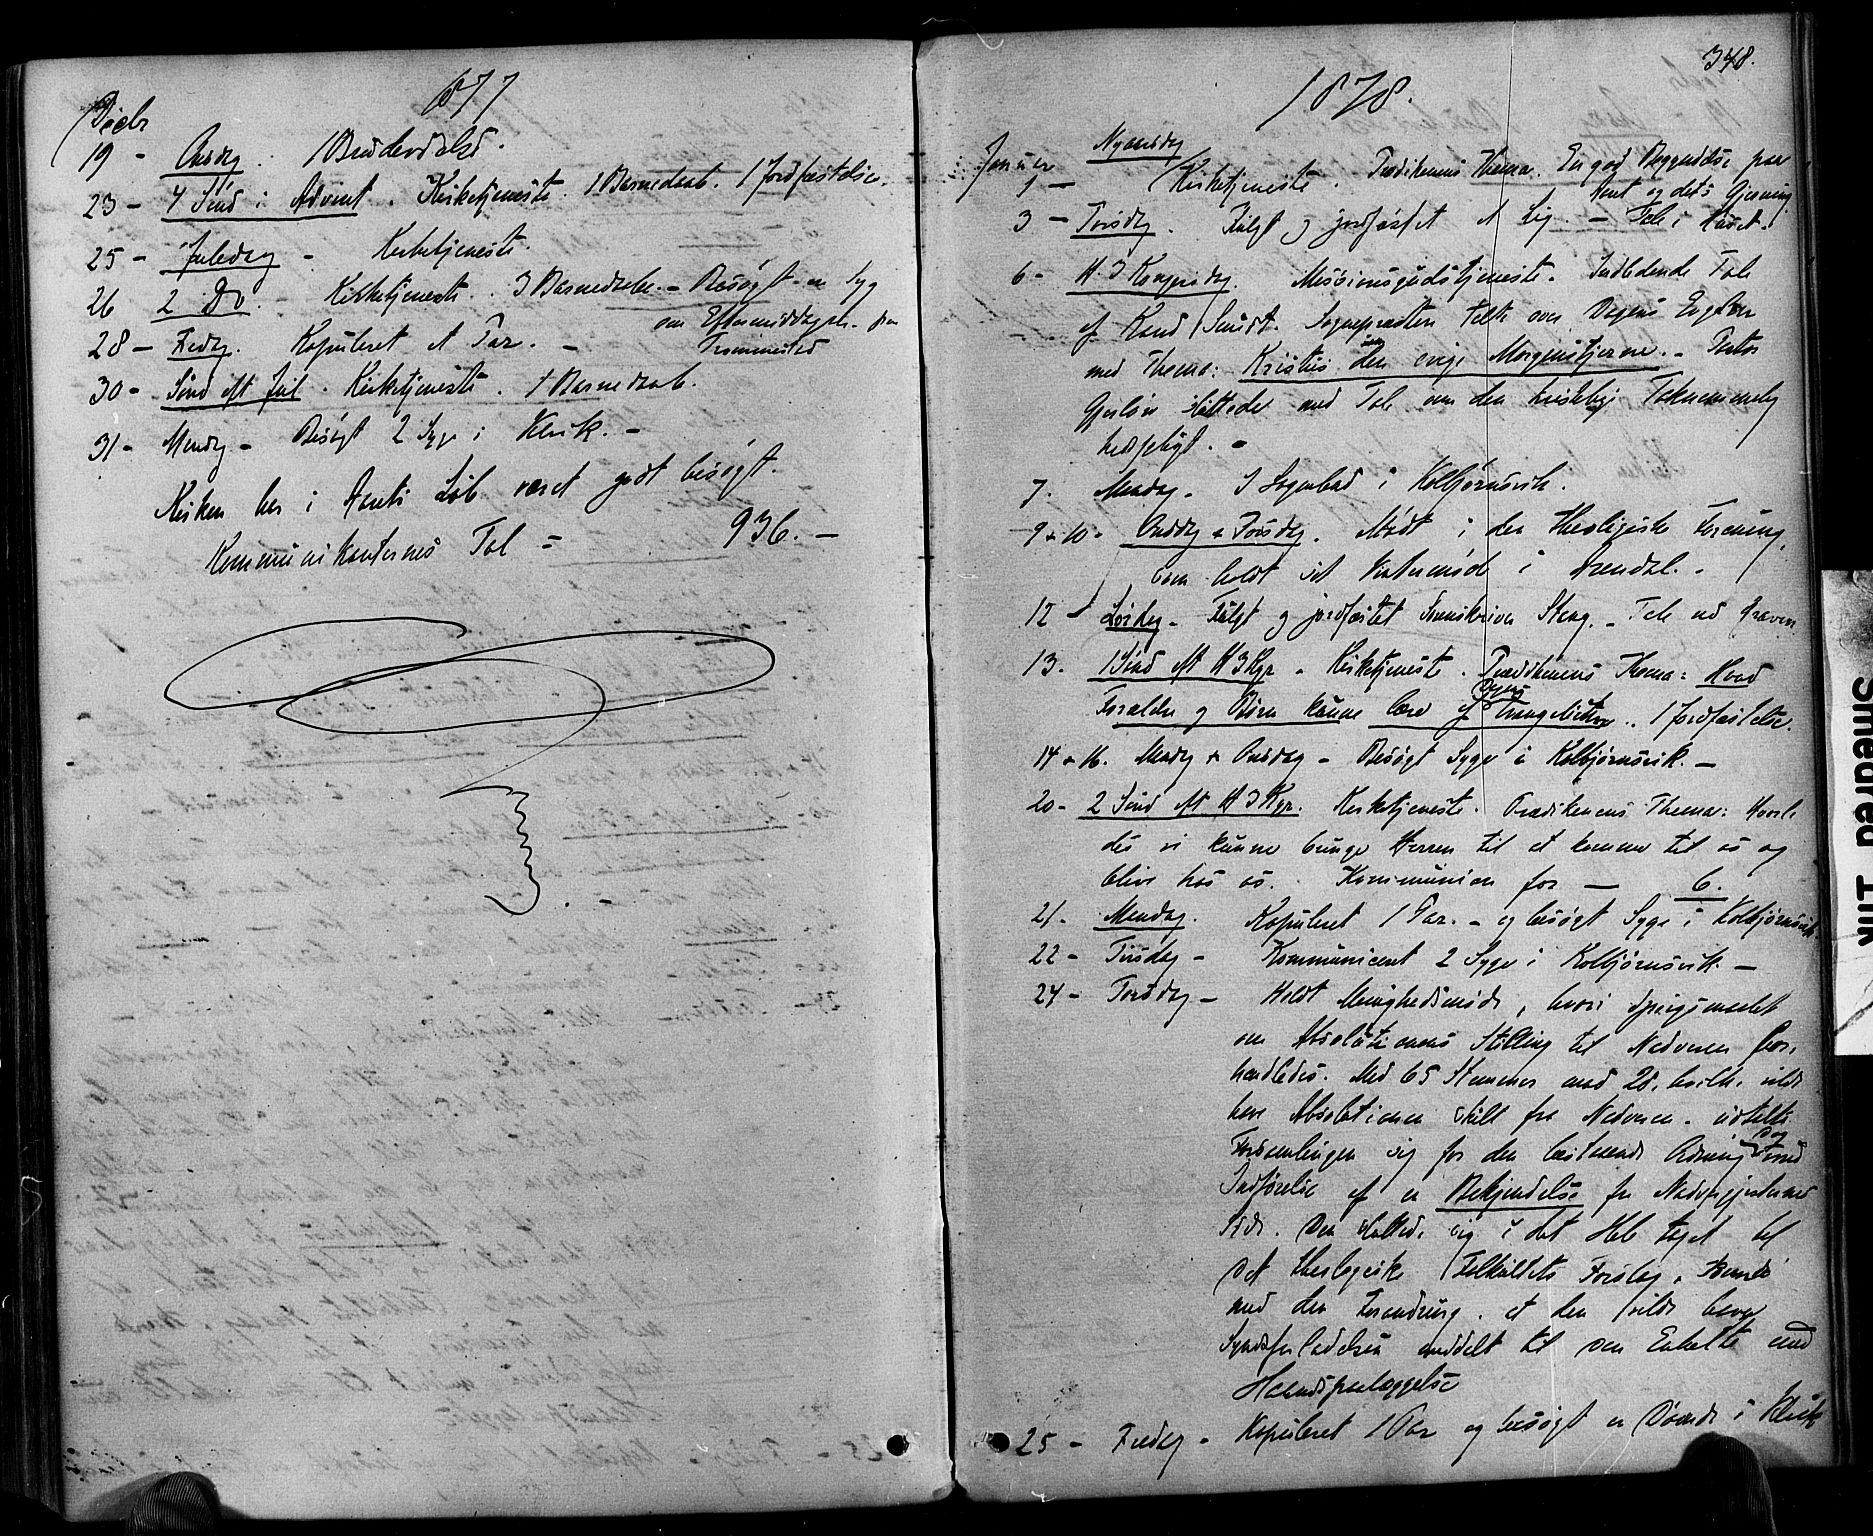 1877
Decbr
19 - Onsdag. 1 Brudevielse.
23 - 4 Sønd i Advent. Kirketjeneste. 1 Barnedaab. 1 Jordfæstelse.
25 - Juledag - Kirketjeneste.
26 2 Do. - Kirketjeneste. 3 Barnedaabe. - Besøgt en Syg
om Eftermiddagen. paa
28 - Fredag. Kopuleret et Par. - Tromøsund
30 - Sønd eft Jul. Kirketjeneste. 1 Barnedaab.
31 - Mandag - Besøgt 2 Syge i Klevik. -
Kirken har i Aarets Løb været godt besøgt.
Kommunikanternes Tal = 936. -
348.
1878.
Januar Nyaarsdag
1 - Kirketjeneste. Prædikenens Thema. En god Begyndelse paa
Aaret og dets Gjerning.
3 - Torsdag. Fulgt og jordfæstet et Lig. - Tale i Huset.
6 - H. 3 Kongersdag. Missionsgudstjeneste. Indledende Tale
af Kand Smidt. Sognepræsten talte over Dagens Evglium
med Thema: Kristus som den evige Morgenstjerne. - Pastor
Gjerløw sluttede med Tale om den kristelige Taknemmelig
hedspligt. -
7. Mandag. I Sognebud i Kolbjørnsvik.
9 + 10 - Onsdag + Torsdag. Mødt i den theologiske Forening,
som holdt sit Vintermøde i Arendal. -
12 - Lørdag - Fulgt og jordfæstet Sorenskriver Stang. - Tale ved Graven.
13. 1 Sønd eft H 3 Kgr. Kirketjeneste. Prædikenens Thema: Hvad
Forældre og Børn kunne lære af Dagens Evangelium. 1 Jordfæstelse.
14 + 16. Mandag + Onsdag - Besøgt Syge i Kolbjørnsvik. -
20 - 2 Sønd eft H 3 Kgr. Kirketjeneste. Prædikenens Thema: Hvorle
des vi kunne bevæge Herren til at komme til os og
blive hos os. Kommunion for - 6.
21 - Mandag. Kopuleret 1 Par. - og besøgt Syge i Kolbjørnsvik.
22 - Tirsdag - Kommuniceret 2 Syge i Kolbjørnsvik. -
24 - Torsdag - Holdt Menighedsmøde, hvori Spørgsmaalet
om Absolutionens Stilling til Nadveren for,
handledes. Med 65 Stemmer mod 28, hvilke vilde
have Absolutionen skilt fra Nadveren, udtalte
Forsamlingen sig for den bestaaende Ordning dog med
Indførelse af en Bekjendelse fra Nadvergjesternes
Side. Den sluttede sig i det Hele taget til
det theologiske Fakultets Forslag, 
med den Forandring, at den vilde have
Syndsforladelsen meddelt til den Enkelte med
Haandspaalæggelse
25 - Fredag - Kopuleret 1 Par og besøgt en Døende i Klevik
Smeared Ink